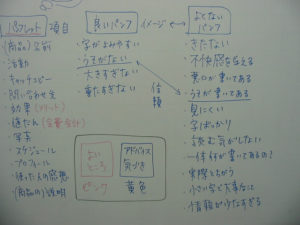 パンフレット 項目
(商品)名前
活動
キャッチコピー
問い合わせ先
効果(メリット)
値だん(金費合計)
写真
スケジュール
プロフィール
使った人の感想
(商品の)説明
良いパンフ
・字がよみやすい
・うそがない
・大きすぎない
・重たすぎない
イメージ
信頼
よくない
パンフ
・きたない
・不快感を与える
・悪口が書いてある
・うそが書いてある
・見にくい
・字ばっかり
・読む気がしない
・一体何が書いてあるの?
・実際とちがう
・小さい字で大事なこと
・情報が少なすぎる
よい
ところ
ピンク
アドバイス
気づき
黄色